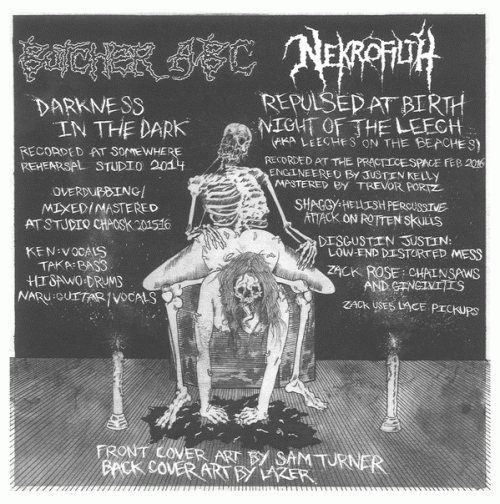 BUTCHER ABC
DARKNESS
IN THE DARK
RECORDED AT SOMEWHERE
REHEARSAL STUDIO 2014
OVERDUBBING/
MIXED/MASTERED
AT STUDIO CHAOSK 2015.16
KEN:VOCALS
TAKA:BASS
HISAWO:DRUMS
NARU:GUITAR/VOCALS
NEKROFILTH
REPULSED AT BIRTH
NIGHT OF THE LEECH
(AKA LEECHES ON THE BEACHES)
RECORDED AT THE PRACTICE SPACE FEB 2016
ENGINEERED BY JUSTIN KELLY
MASTERED BY TREVOR PORTZ
SHAGGY:HELLISH PERCUSSIVE
ATTACK ON ROTTEN SKULLS
DISGUSTIN JUSTIN:
LOW-END DISTORTED MESS
ZACK ROSE: CHAINSAWS
AND GINGIVITIS
ZACK USES LACE PICKUPS
FRONT COVER ART BY SAM TURNER
BACK COVER ART BY LAZER.